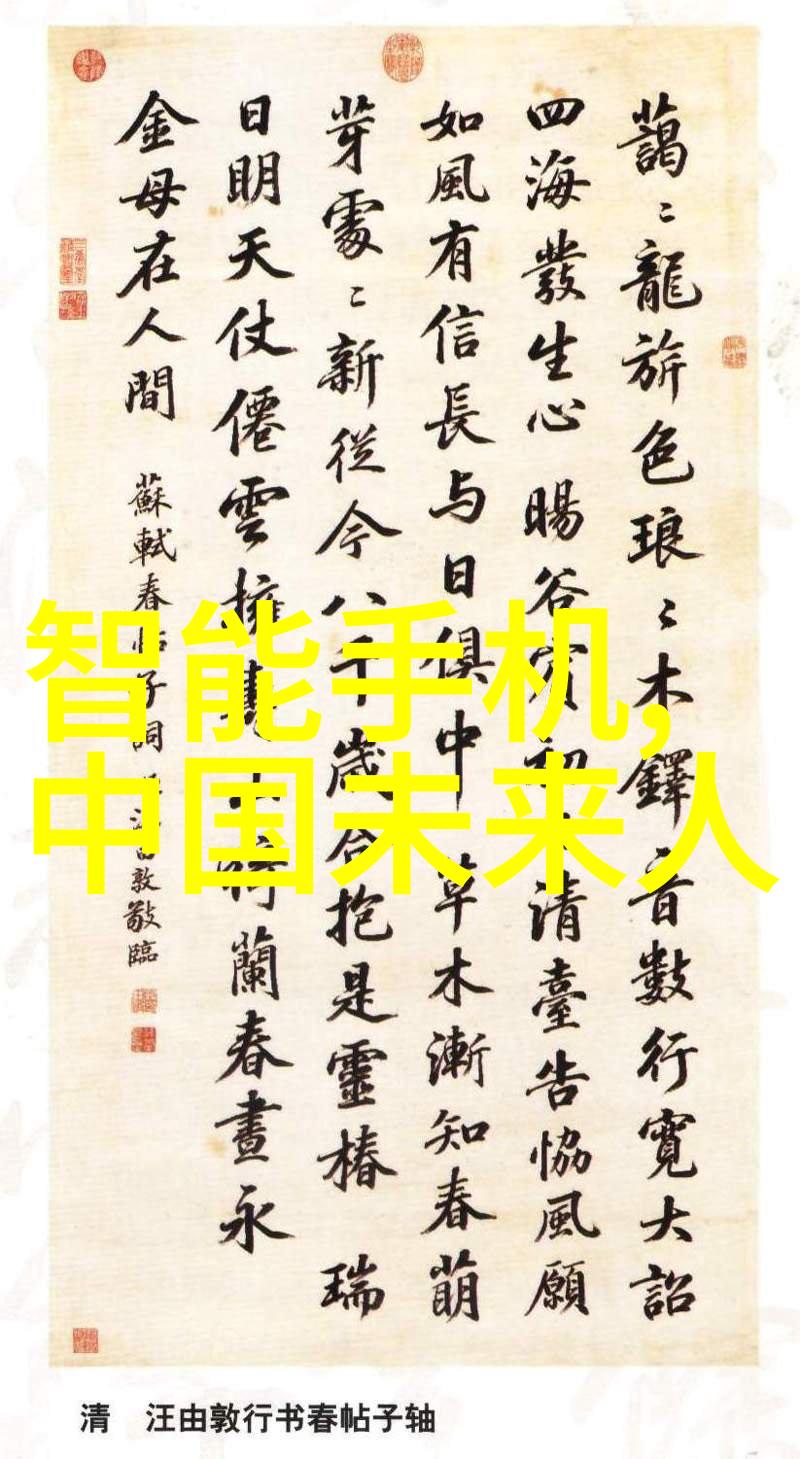 藹〻龍旂色琅〻木鐸音數行寬大詔
四海發生心 暘谷賓初清臺告協風願
如風有信長与日俱中 草木漸知春萌
芽處〻新從今八千歲合抱是靈椿 瑞
日明天仗僊雲擁壽猗蘭春晝永
金母在人間
蘇軾春帖子詞 汪由敦敬臨
智能手机,
中国未来人
清 汪由敦行书春帖子轴